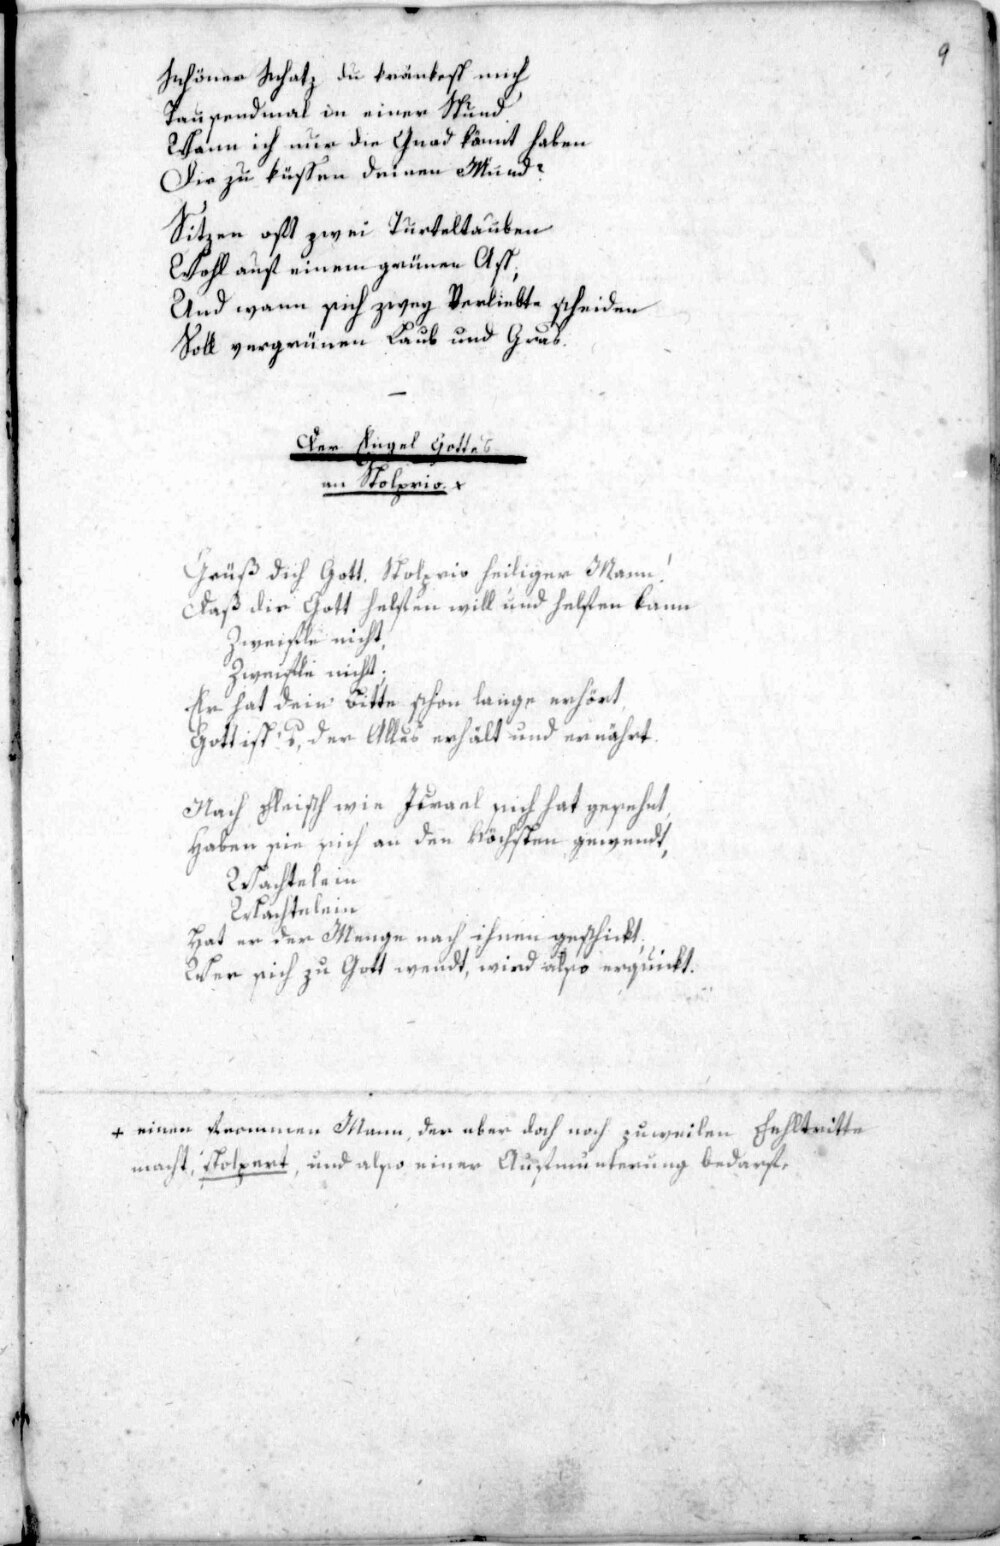 9
Schöner Schatz du kränkest mich
Tausendmal in einer Stund
Wann ich nur die Gnad könnt haben
Dir zu küssen deinen Mund?
Sitzen oft zwei Turteltauben
Wohl auf einem grünen Ast,
Und wann sich zwey Verliebte scheiden
Soll vergrünen Laub und Gras.
—
Der Engel Gottes
an Stolprio. x
Grüß dich Gott, Stolprio heiliger Mann!
Daß dir Gott helfen will und helfen kann
Zweifle nicht,
Zweifle nicht;
Er hat dein Bitte schon lange erhört,
Gott ist's, der Alles erhält und ernährt.
Nach Fleisch wie Israel sich hat gesehnt,
Haben sie sich an den Höchsten gewendt,
Wachtelein
Wachtelein
Hat er der Menge nach ihnen geschickt,
Wer sich zu Gott wendt, wird also erquickt.
+ einen frommen Mann, der aber doch noch zuweilen Fehltritte
macht, stolpert, und also einer Aufmunterung bedarf.